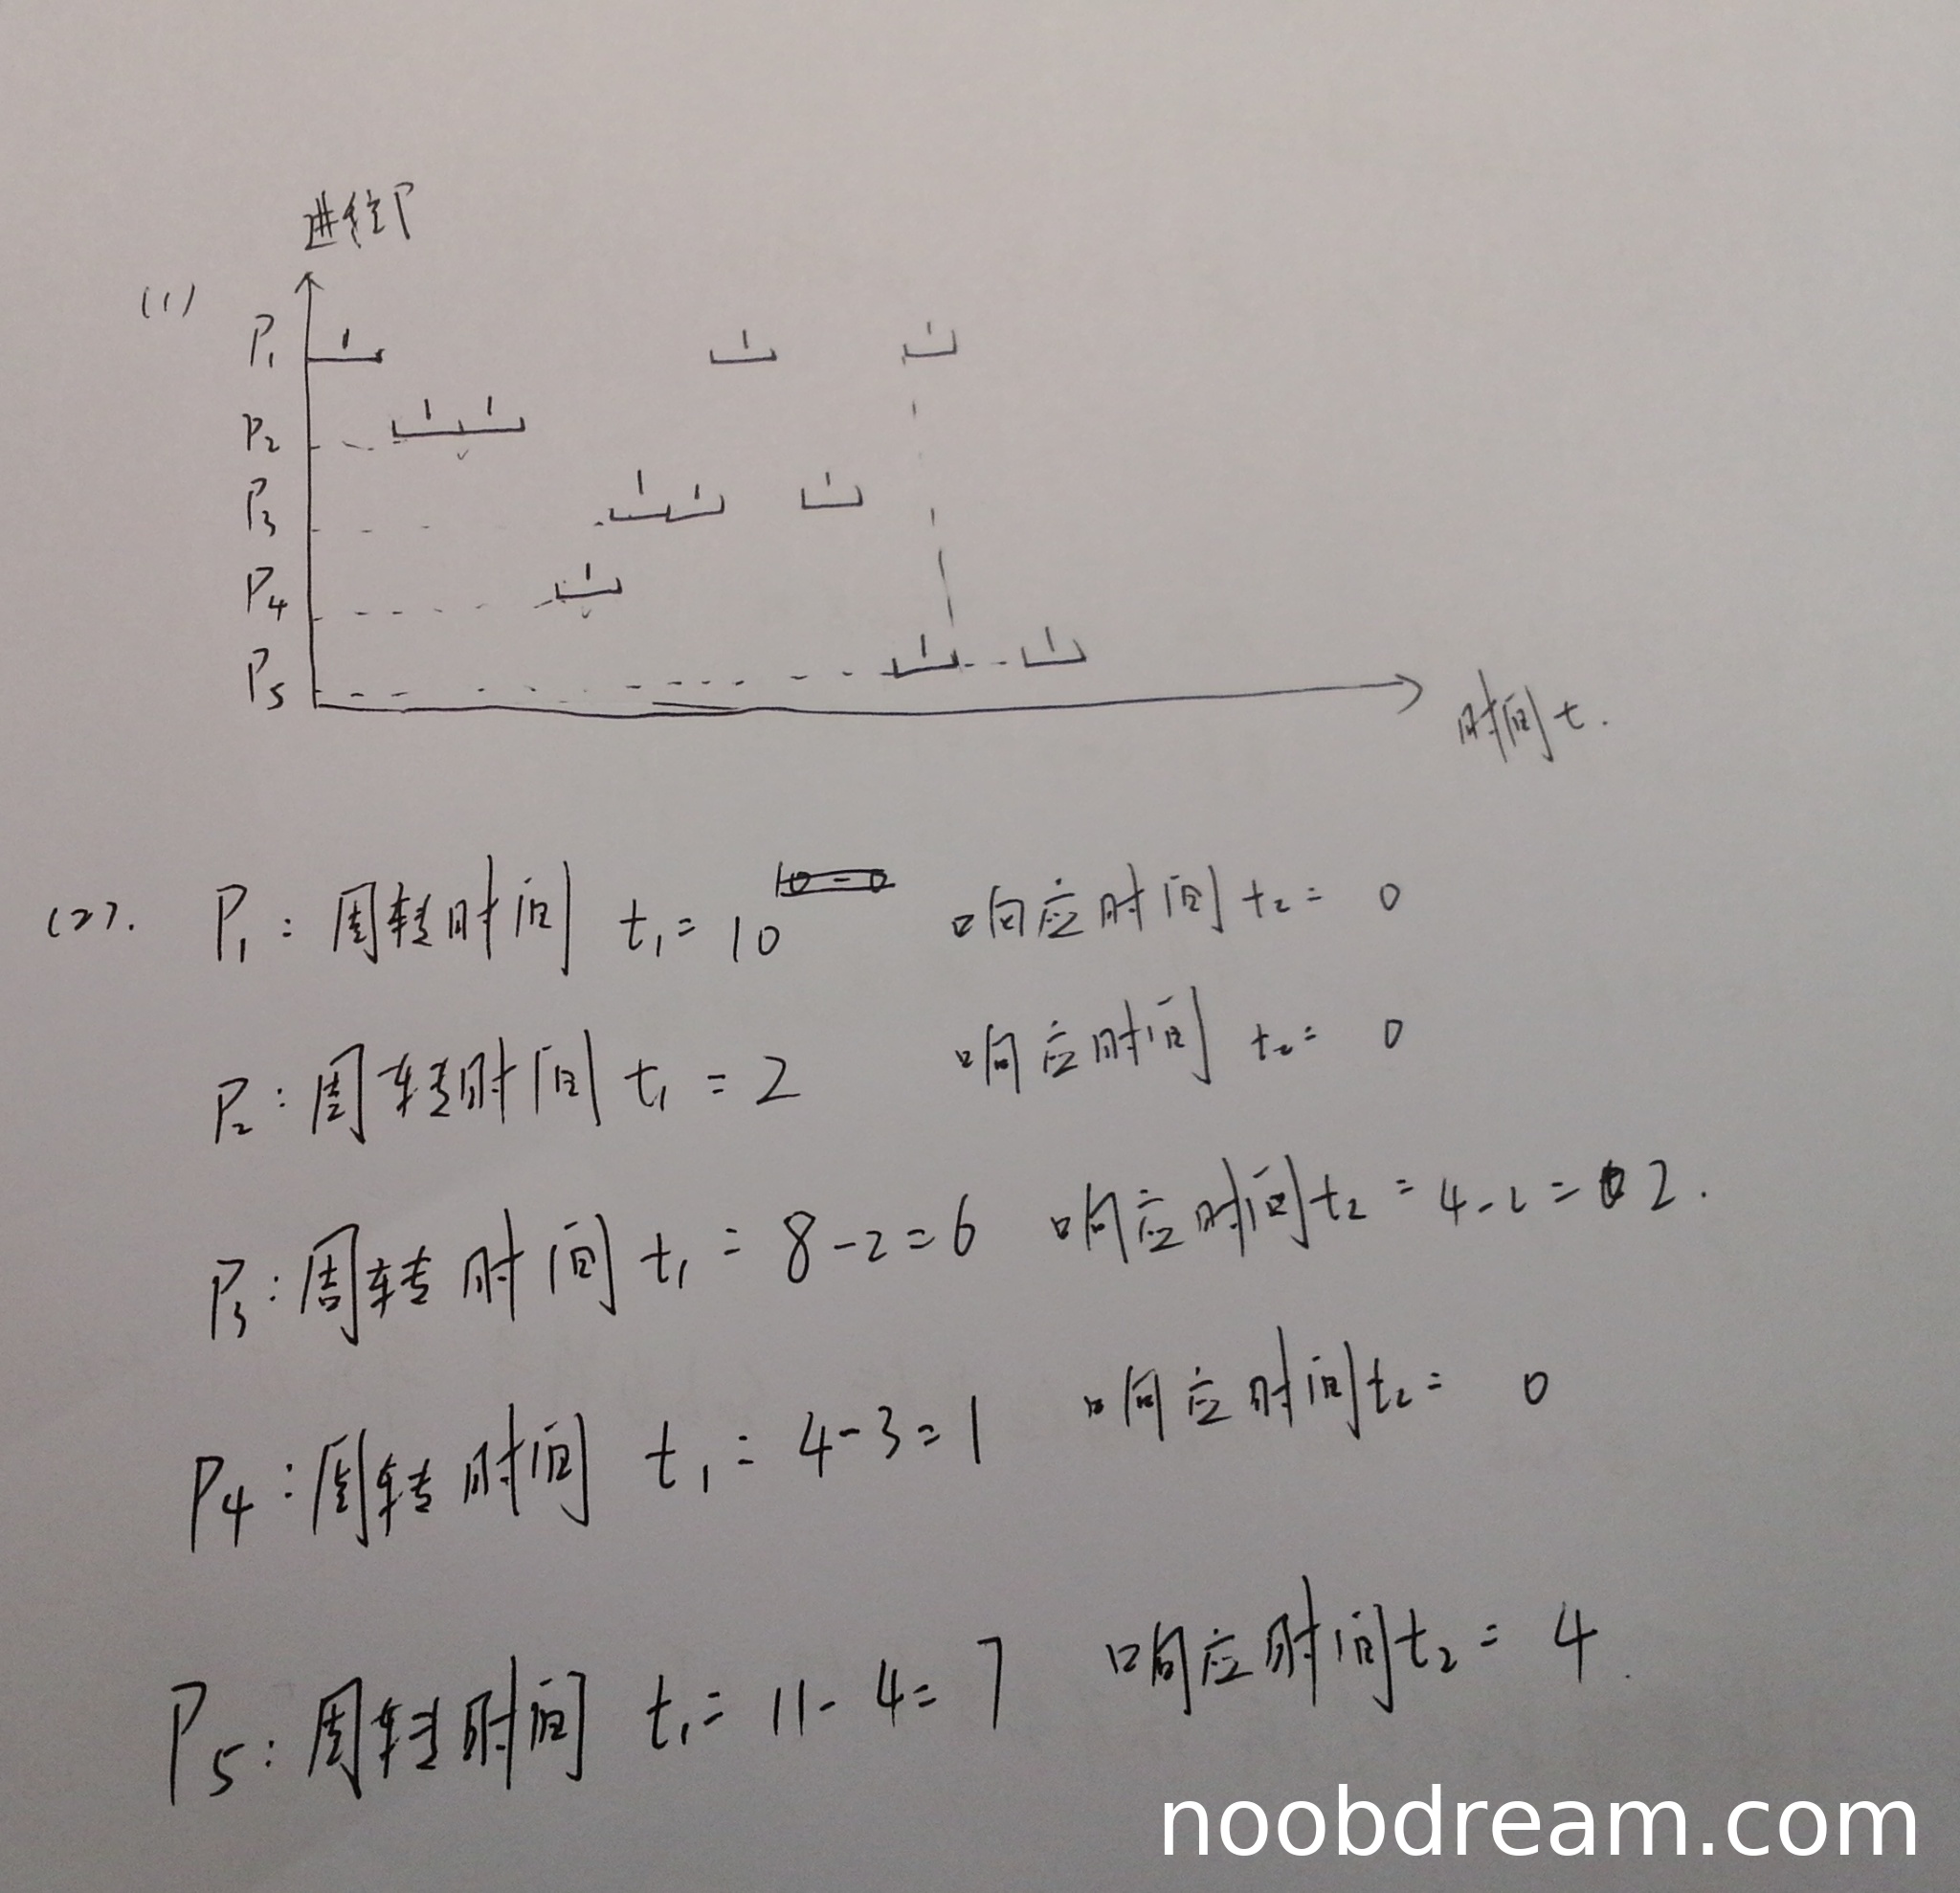 进程P
(1)
P1
P2
P3
P4
P5
时间t.
(2). P1: 周转时间 t1= 10 响应时间 t2= 0
P2: 周转时间 t1 = 2 响应时间 t2= 0
P3: 周转时间 t1 = 8-2=6 响应时间 t2 = 4-2= 2.
P4: 周转时间 t1= 4-3=1 响应时间 t2= 0
P5: 周转时间 t1= 11-4=7 响应时间 t2= 4.
noobdream.com